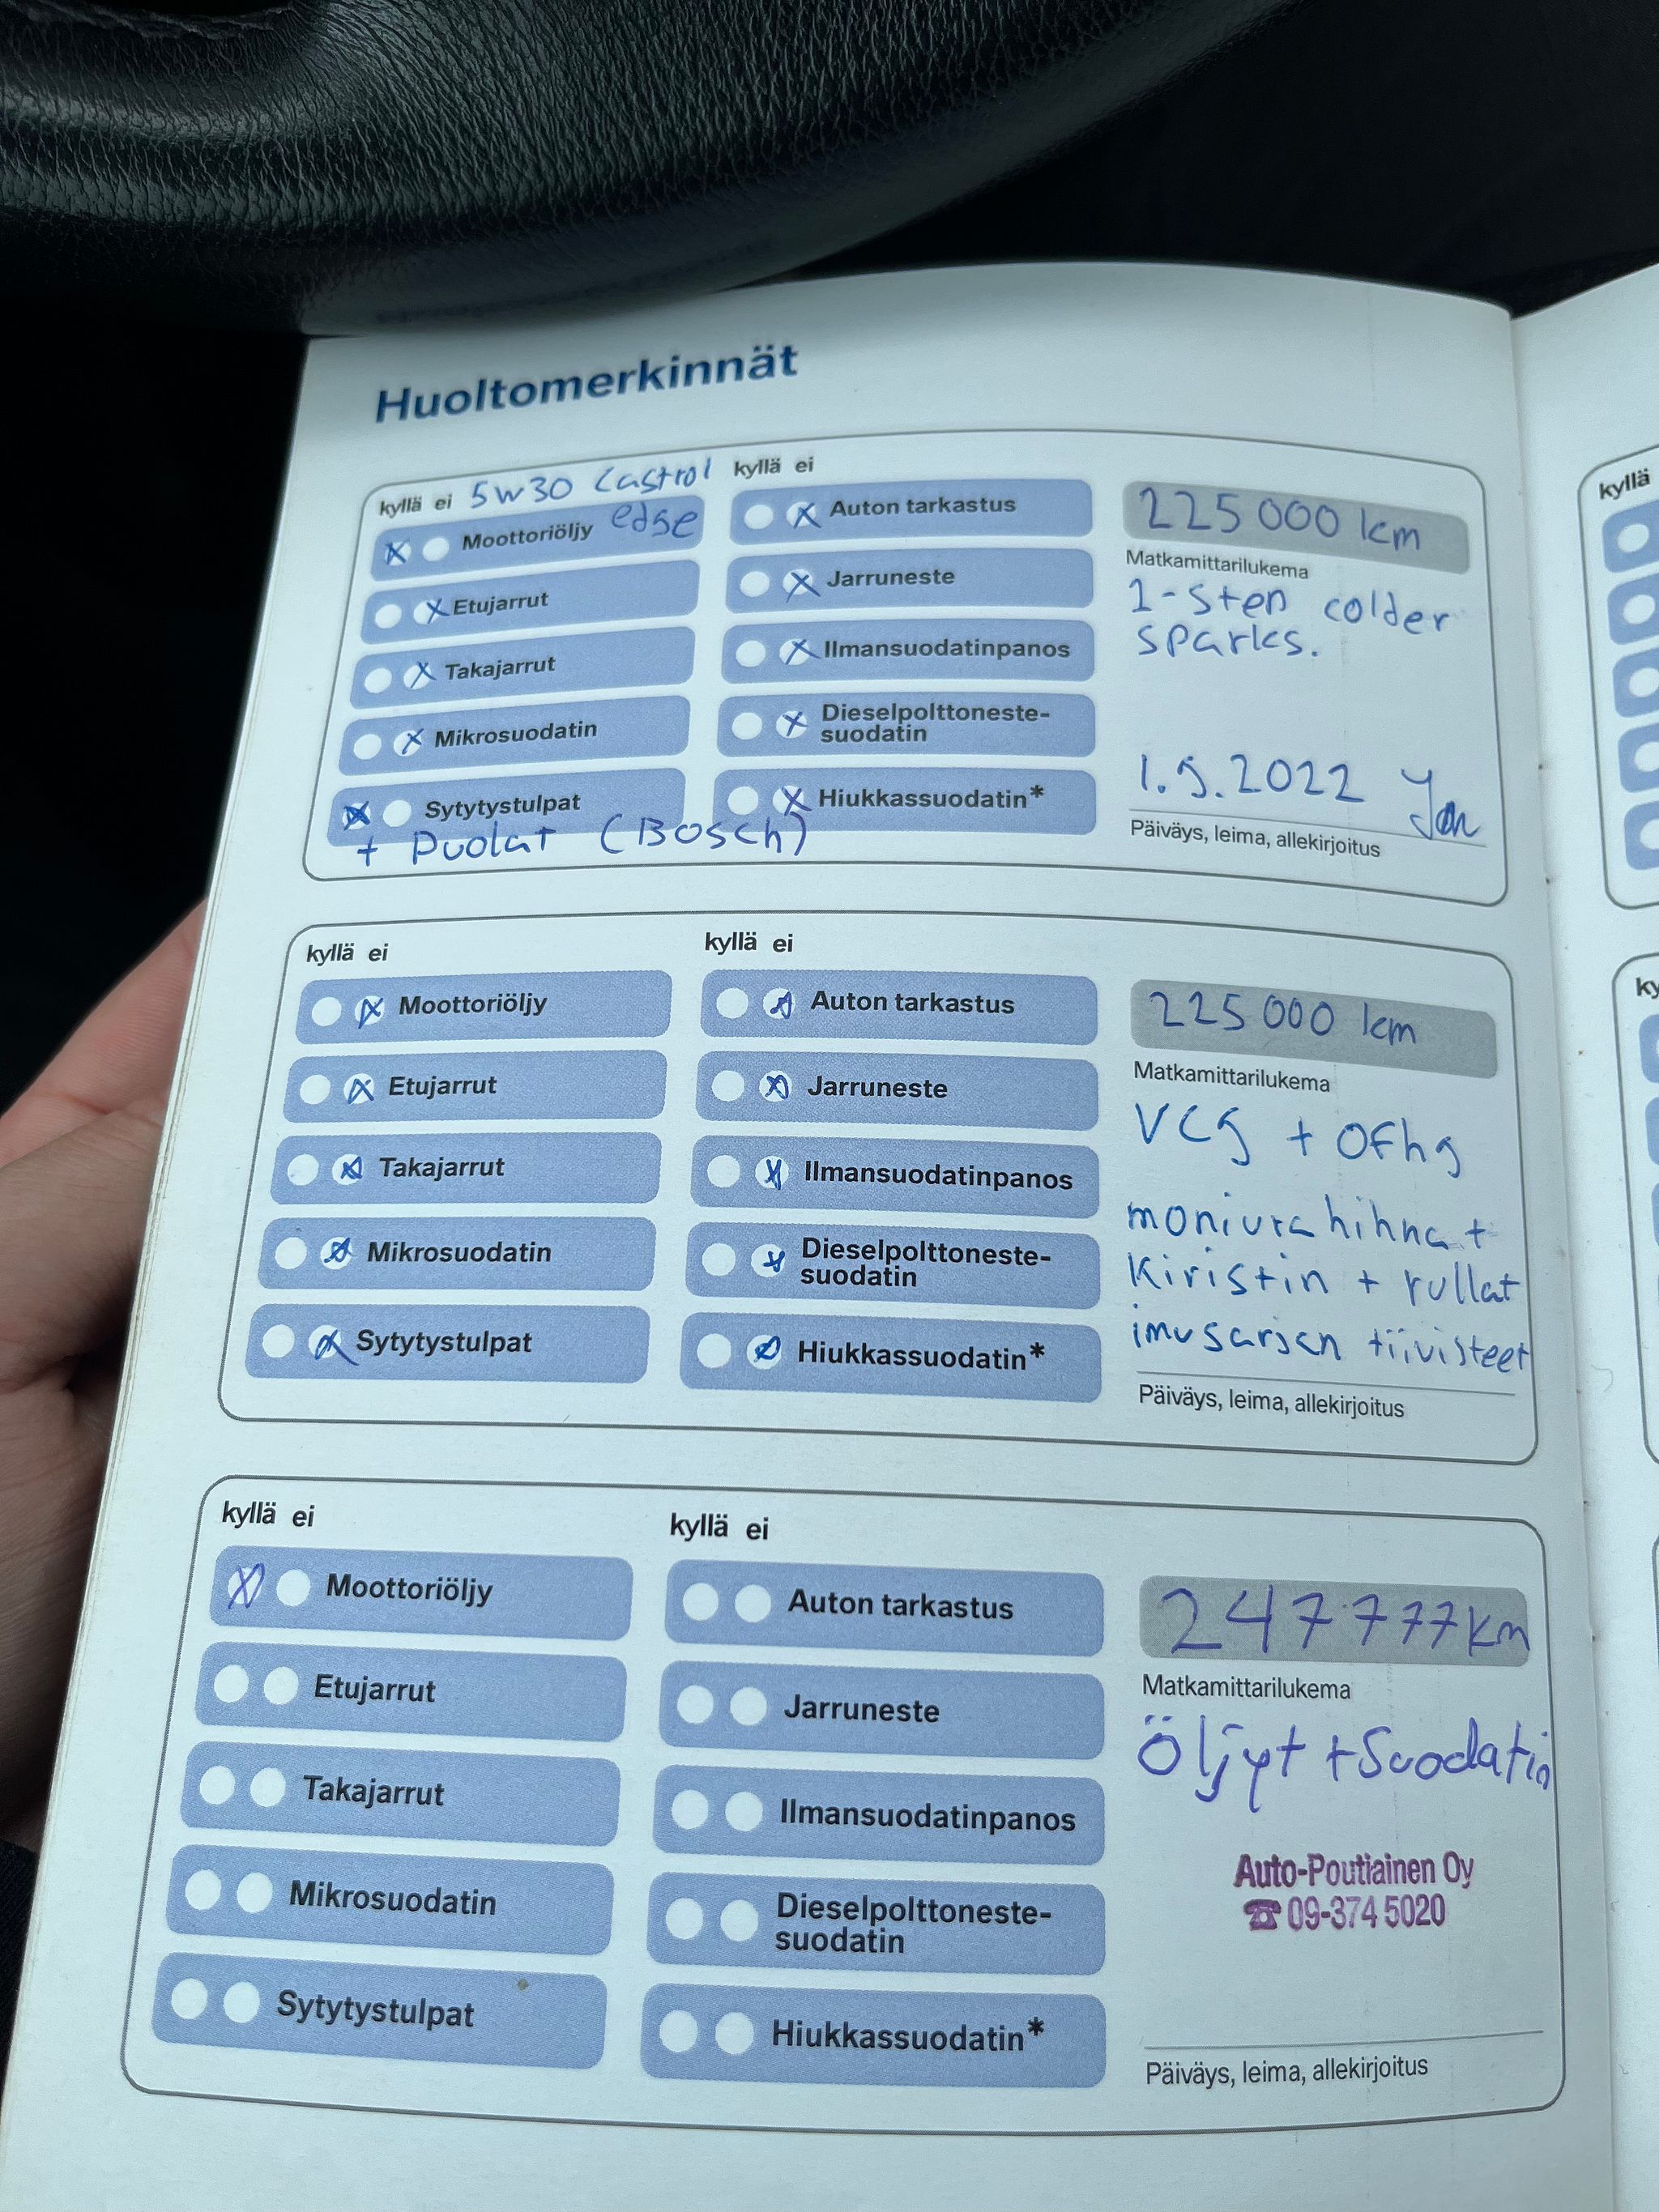 Huoltomerkinnät
kyllä ei 5w30 Castrol
Moottoriöljy edge
Etujarrut
Takajarrut
Mikrosuodatin
Sytytystulpat
+ Puolat (Bosch)
kyllä ei
Auton tarkastus
Jarruneste
Ilmansuodatinpanos
Dieselpolttoneste-
suodatin
Hiukkassuodatin*
225 000 km
Matkamittarilukema
1-step colder
sparks.
1.9.2022
Päiväys, leima, allekirjoitus
kyllä ei
Moottoriöljy
Etujarrut
Takajarrut
Mikrosuodatin
Sytytystulpat
kyllä ei
Auton tarkastus
Jarruneste
Ilmansuodatinpanos
Dieselpolttoneste-
suodatin
Hiukkassuodatin*
225 000 km
Matkamittarilukema
VCg + OFhg
moniurahihna +
Kiristin + rullat
imusarjan tiivisteet
Päiväys, leima, allekirjoitus
kyllä ei
Moottoriöljy
Etujarrut
Takajarrut
Mikrosuodatin
Sytytystulpat
kyllä ei
Auton tarkastus
Jarruneste
Ilmansuodatinpanos
Dieselpolttoneste-
suodatin
Hiukkassuodatin*
247 777 km
Matkamittarilukema
Öljyt + Suodatin
Auto-Poutiainen Oy
☎ 09-374 5020
Päiväys, leima, allekirjoitus
kyllä